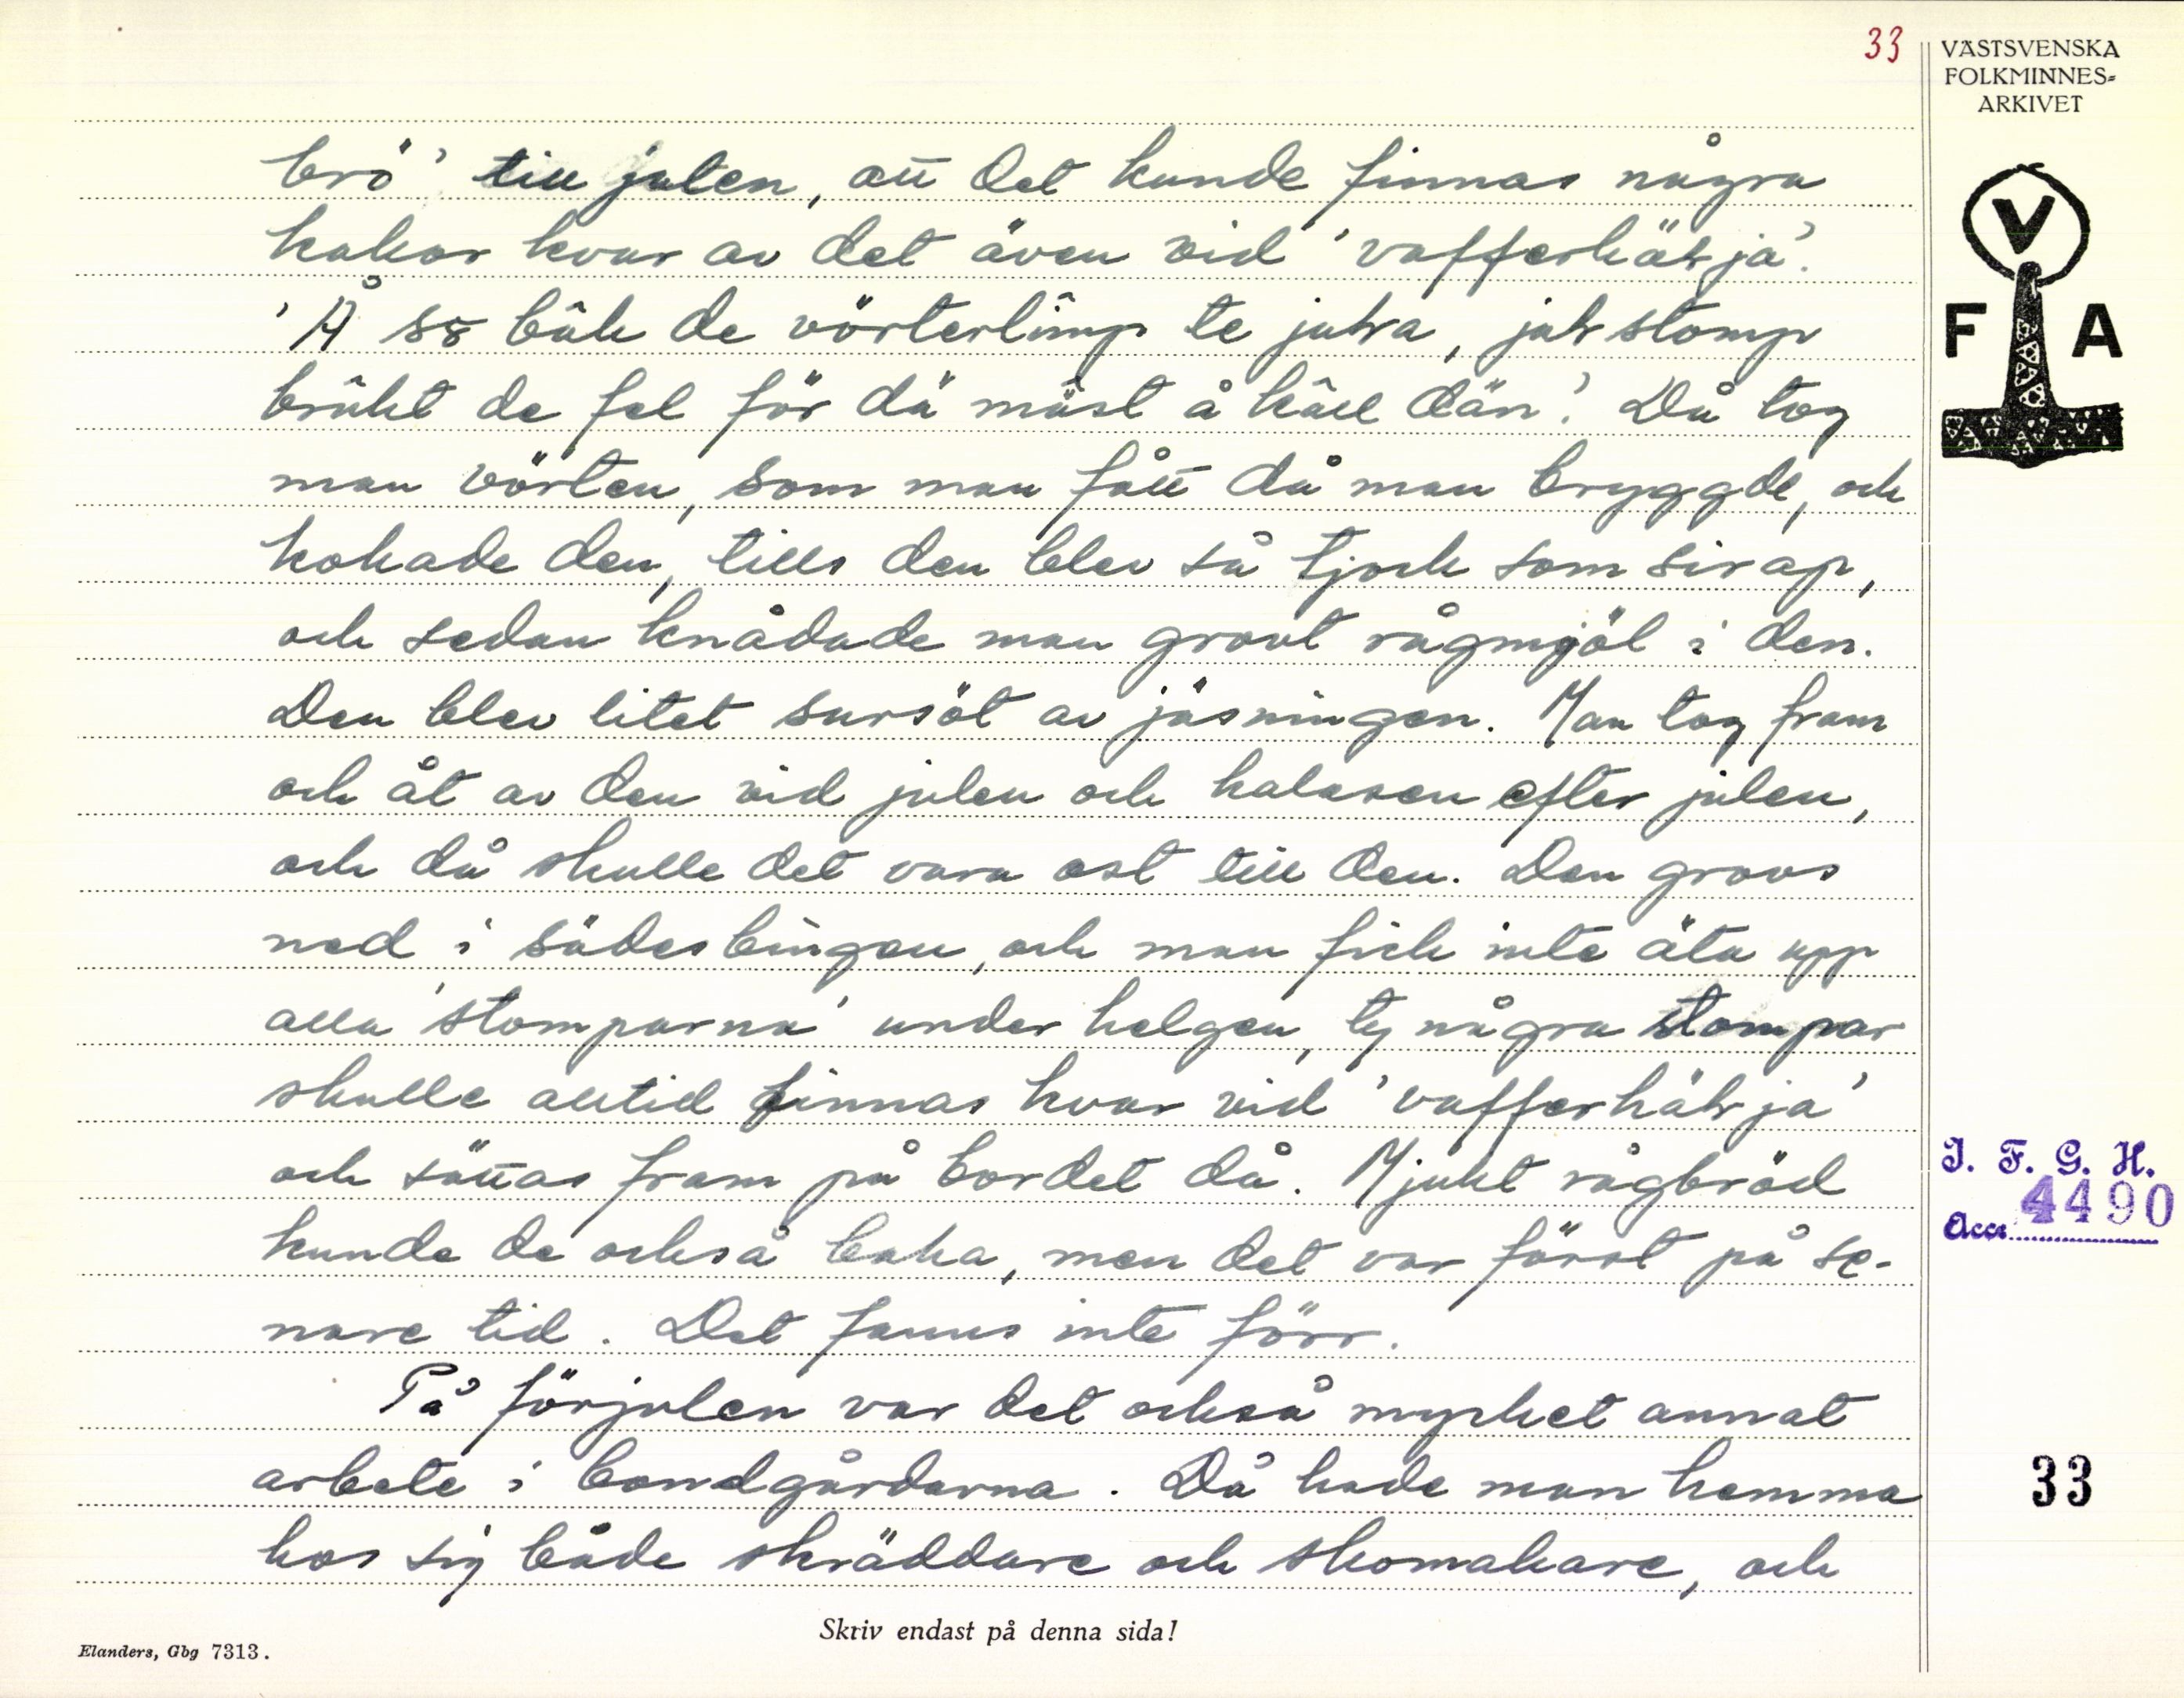 33
VÄSTSVENSKA
FOLKMINNES=
ARKIVET
V
F A
brö' till julen, att det kunde finnas några
kakor kvar av det även vid 'vafferhälja'.
'Å så bâk de vörterlimp te jula, julstomp
brûkt de fel för dä mäst å kâll dän'. Då tog
man vörten, som man fått då man bryggde, och
kokade den, tills den blev så tjock som sirap,
och sedan knådade man grovt rågmjöl i den.
Den blev litet sursöt av jäsningen. Man tog fram
och åt av den vid julen och kalasen efter julen,
och då skulle det vara ost till den. Den grovs
ned i sädesbingen, och man fick inte äta upp
alla 'stomparna' under helgen, ty några stompar
skulle alltid finnas kvar vid 'vafferhälja'
och sättas fram på bordet då. Mjukt rågbröd
kunde de också baka, men det var först på se-
nare tid. Det fanns inte förr.
På förjulen var det också mycket annat
arbete i bondgårdarna. Då hade man hemma
hos sig både skräddare och skomakare, och
I. F. G. H.
Acc. 4490
33
Skriv endast på denna sida!
Elanders, Gbg 7313.